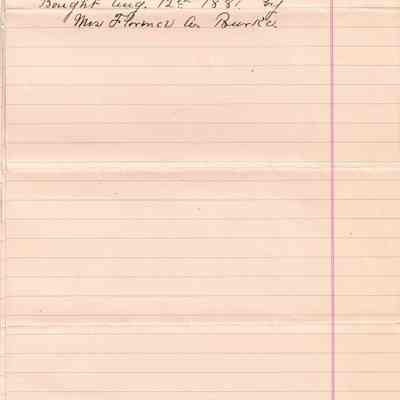 Bought Aug. 12th 1881. by
Mrs Florence A. Burke.